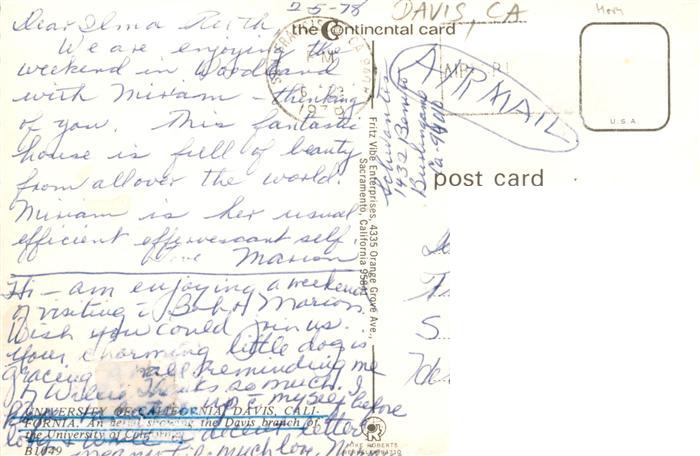 2-5-78
DAVIS, CA
Dear Ilma Reith
the Continental card
We are enjoying the
weekend in Woodland
with Miriam - thinking
of you. This fantastic
house is full of beauty
from all over the world.
Miriam is her usual
efficient effervescent self.
Love Marion
Hi - am enjoying a weekend
of visiting Bob & Marion.
Wish you could join us.
Your charming little dog is
gracing a wall reminding me
of Thanks so much. I
myself before
a decent letter
meanwhile, much love,
UNIVERSITY OF CALIFORNIA, DAVIS, CALI-
FORNIA. An aerial showing the Davis branch of
the University of California.
B1049
PM
1978
AIR MAIL
U.S.A.
1432
Burlingame
Ca
post card
Fritz Vibe Enterprises, 4335 Orange Grove Ave.,
Sacramento, California 95841
MIKE ROBERTS
S